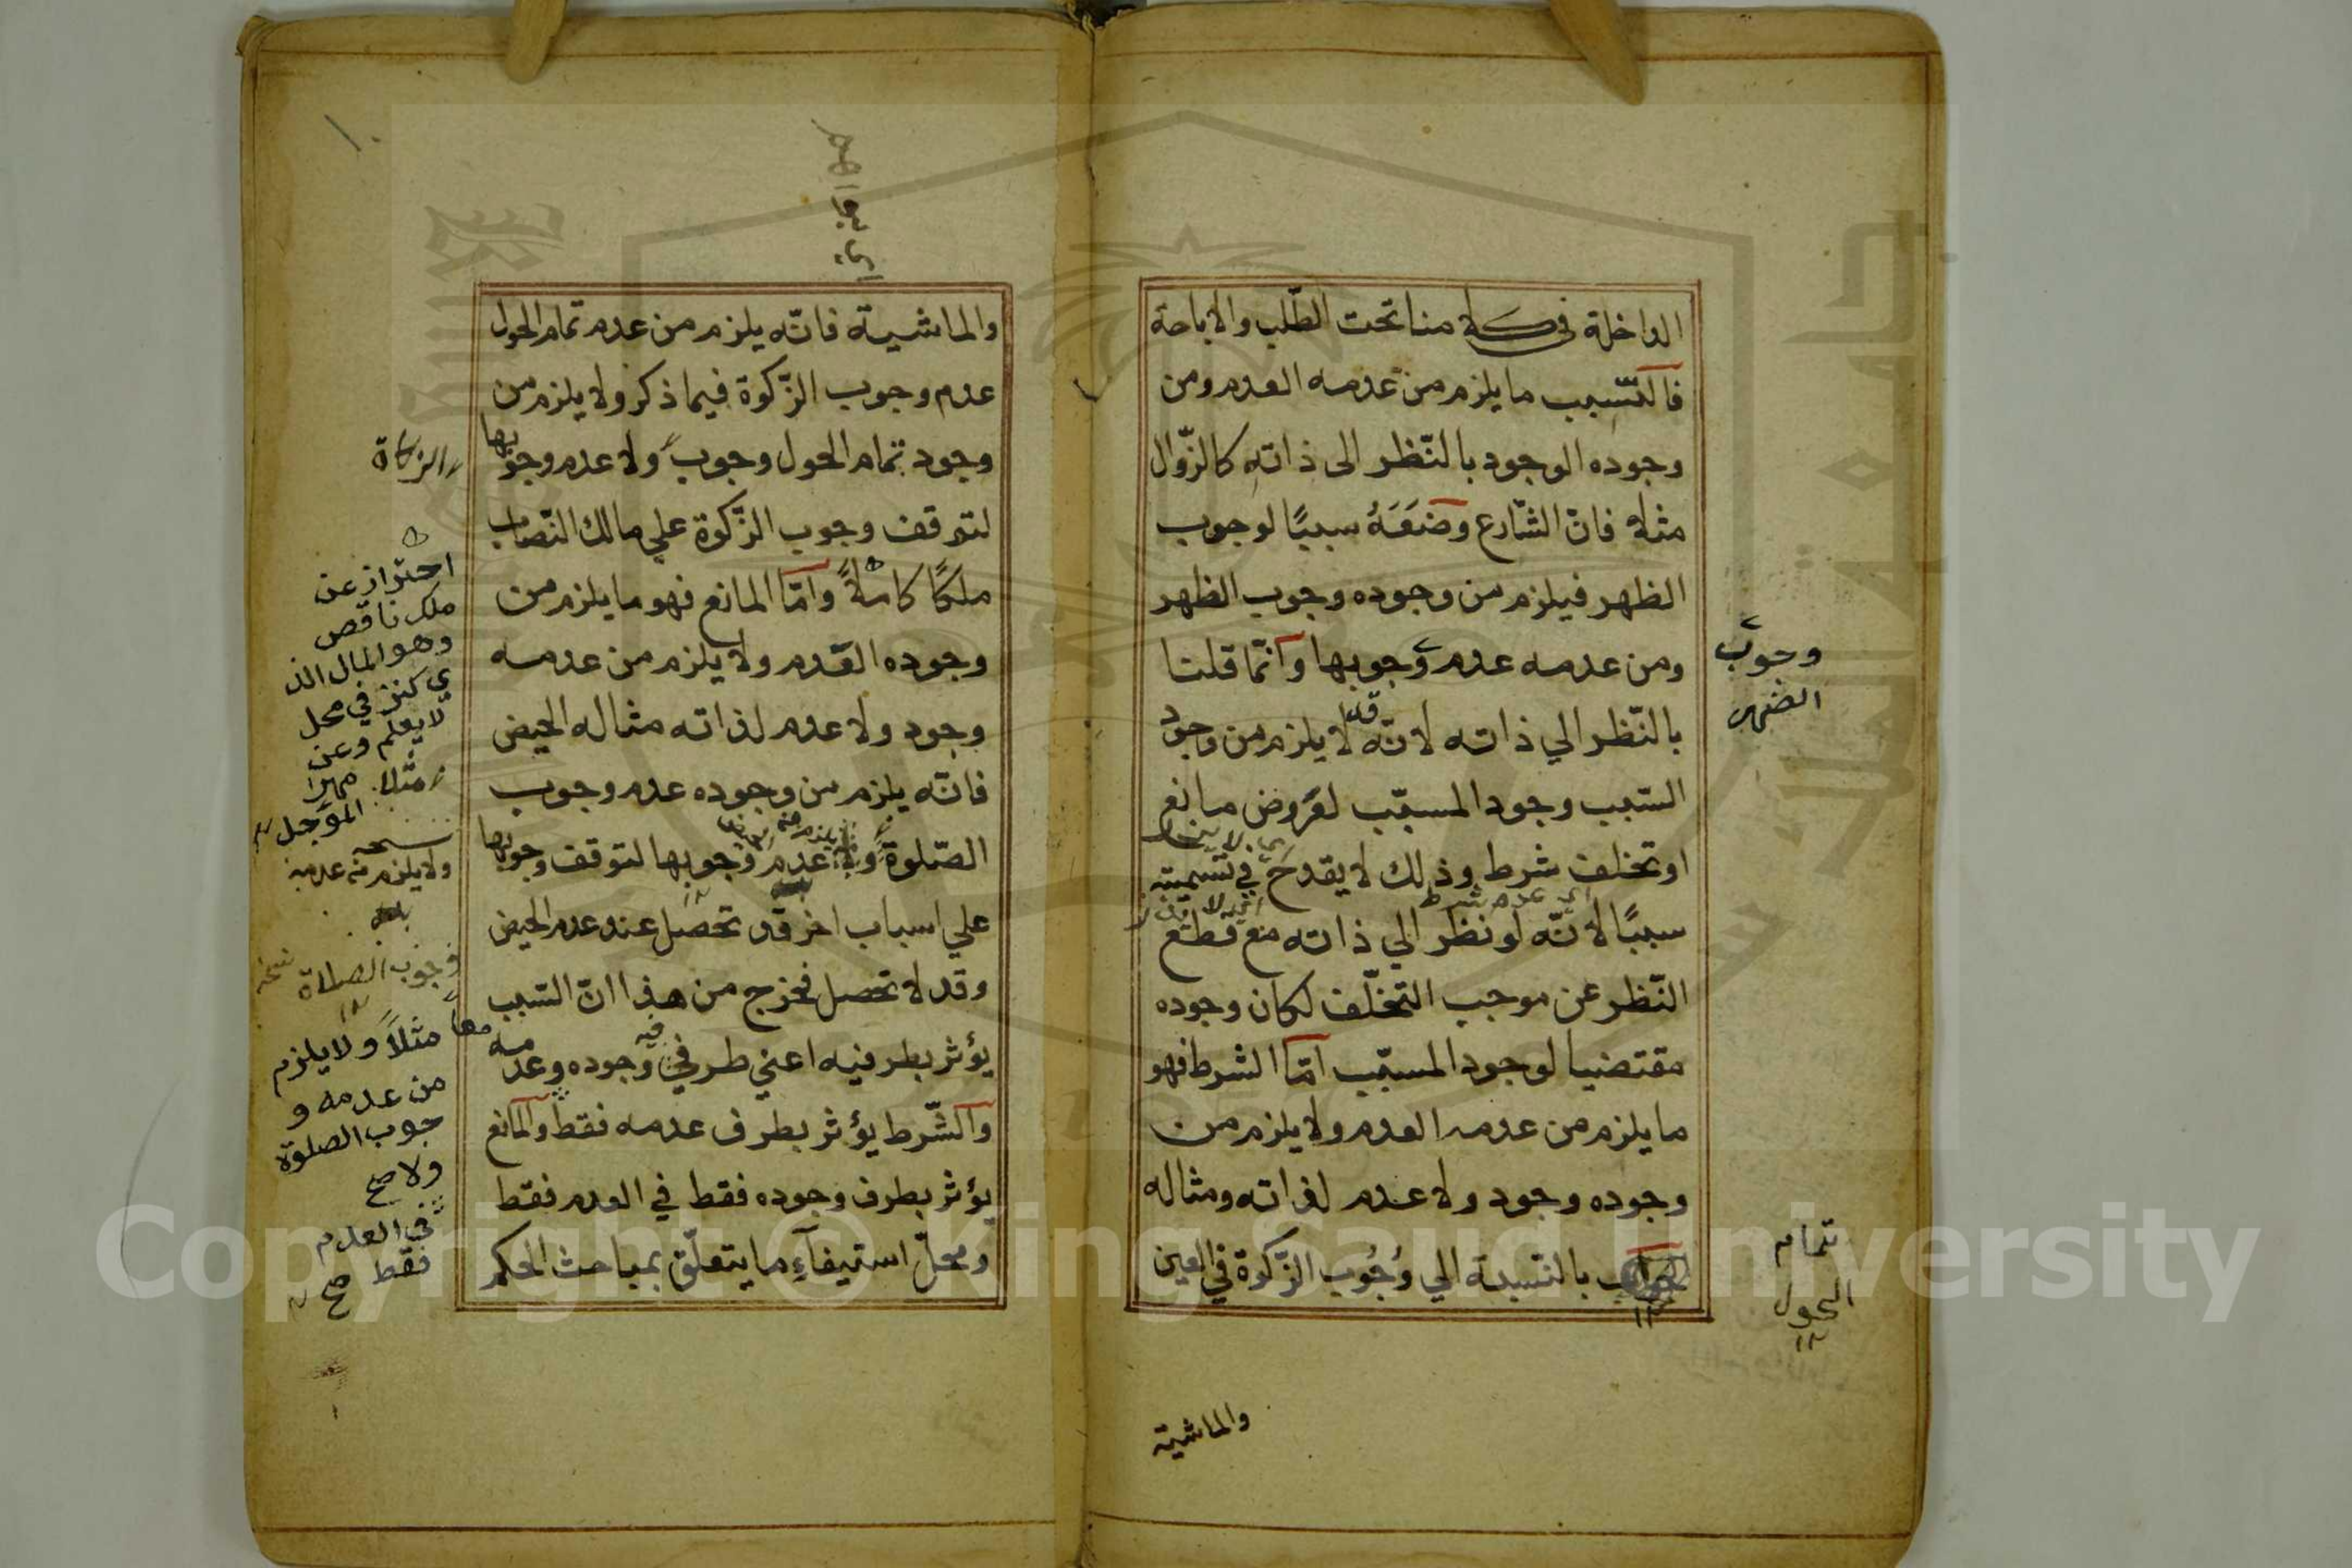 الداخلة في كلامنا تحت الطّلب والاباحة
فالسّبب ما يلزم من عدمه العدم ومن
وجوده الوجود بالنّظر الى ذاته كالزّوال
مثلا فانّ الشّارع وضَعَهُ سببًا لوجوب
الظهر فيلزم من وجوده وجوب الظهر
ومن عدمه عدم وجوبها وانّما قلنا
بالنّظر الي ذاته لانّه قد لا يلزم من وجود
السّبب وجود المسبّب لعروض مانع
او تخلف شرط وذلك لا يقدح في تسميته
اي عدم شرط
سببًا لانّه لو نظر الي ذاته مع قطع
النّظر عن موجب التخلّف لكان وجوده
مقتضيا لوجود المسبّب امّا الشرط فهو
ما يلزم من عدمه العدم ولا يلزم من
وجوده وجود ولا عدم لذاته ومثاله
بالنّسبة الي وُجُوب الزّكوة في العين
وجوب
الضهر
تمام
الحول
١٢
والماشية
١٠
والماشية فانّه يلزم من عدم تمام الحول
عدم وجوب الزّكوة فيما ذكر ولا يلزم من
وجود تمام الحول وجوب ولا عدم وجوبها
لتوقف وجوب الزّكوة علي مالك النّصاب
ملكًا كاملاً وامّا المانع فهو ما يلزم من
وجوده العدم ولا يلزم من عدمه
وجود ولا عدم لذاته مثاله الحيض
فانّه يلزم من وجوده عدم وجوب
الصّلوة ولا عدم وجوبها لتوقف وجوبها
علي اسباب اخر قد تحصل عند عدم الحيض
وقد لا تحصل فخرج من هذا انّ السّبب
يؤثر بطرفيه اعني طرفي وجوده وعدمه
والشّرط يؤثر بطرف عدمه فقط والمانع
يؤثر بطرف وجوده فقط في العدم فقط
ومحلّ استيفآءِ ما يتعلّق بمباحث الحكم
الزكاة
احتراز عن
ملك ناقص
وهو المال الذ
ي كنز في محل
لا يعلم وعن
مثلا مهرا
المؤجل
ولا يلزم من عدمه
وجوب الصلاة نسخه
مثلاً ولا يلزم
من عدمه و
جوب الصلوة
ولا صح
في العدم
فقط صح